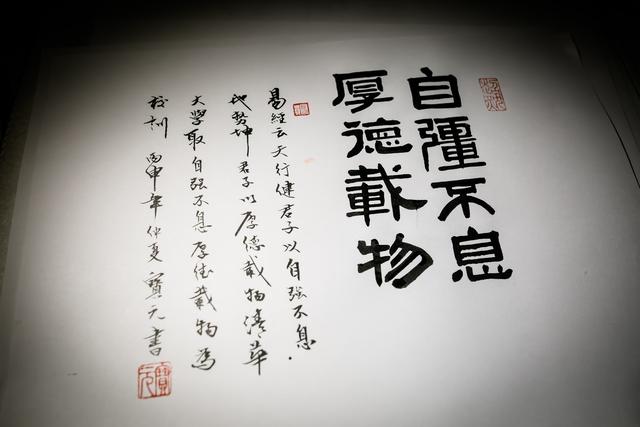 自彊不息
厚德載物
易經云天行健君子以自强不息
地势坤君子以厚德載物清華
大學取自强不息厚德載物為
校訓 丙申年仲夏寶元書
寶元